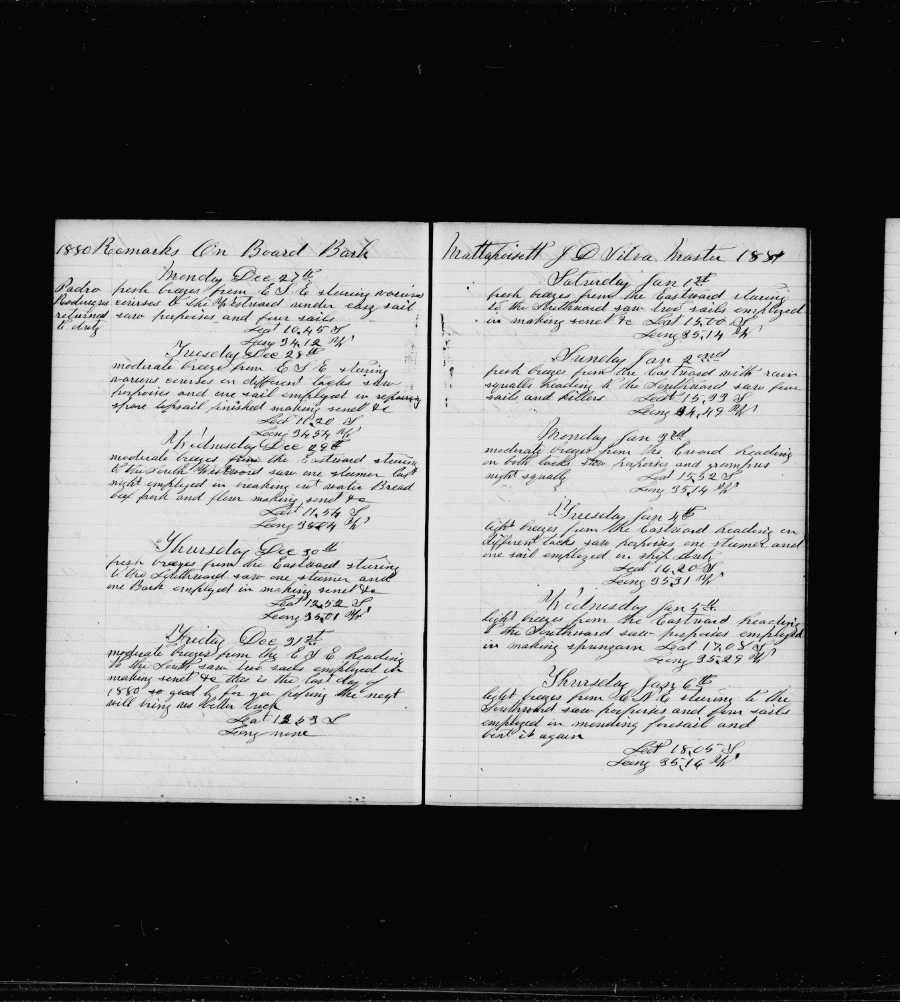 1880 Remarks On Board Bark
Monday Dec 27th
Padro
Roderigus
returned
to duty
fresh breezes from E S E stearing various
courses to the Westward under easy sail
saw porpoises and four sails
Leat 10,45 S
Long 34,12 W
Tuesday Dec 28th
moderate breeze from E S E stearing
various courses on different tacks saw
porpoises and one sail employed in repairing
spare topsail finished making senet &c
Leat 11,20 S
Leong 34,54 W
Wednesday Dec 29th
moderate breezes from the Eastward stearing
to the South Westward saw one steamer last
night employed in breaking out water Bread
beef pork and flour making senet &c
Leat 11,54 S
Leong W
Thursday Dec 30th
fresh breezes from the Eastward stearing
to the Southward saw one steamer and
one Bark employed in making senet &c
Leat 12,52 S
Leong 35,01 W
Friday Dec 31st
moderate breezes from the E S E heading
to the South saw two sails employed in
making senet &c this is the last day of
1880 so good by for you hoping the next
will bring us better luck
Leat 12,53 S
Leong none
Mattapoisett J D Silva Master 1881
Saturday Jan 1st
fresh breezes from the Eastward stearing
to the Southward saw two sails employed
in making senet &c Leat 15,00 S
Leong 35,14 W
Sunday Jan 2ond
fresh breezes from the Eastward with rain
squalls heading to the Southward saw four
sails and killers Leat 15,33 S
Leong 34,49 W
Monday Jan 3rd
moderate breezes from the Eward heading
on both tacks saw porpoises and grampus
night squally Leat 15,52 S
Leong 35,14 W
Tuesday Jan 4th
light breezes from the Eastward heading on
different tacks saw porpoises one steamer and
one sail employed in ship duty
Leat 16,20 S
Leong 35,31 W
Wednesday Jan 5th
light breezes from the Eastward heading
to the Southward saw porpoises employed
in making spunyarn Leat 17,08 S
Leong 35,29 W
Thursday Jan 6th
light breezes from E N E stearing to the
Southward saw porpoises and four sails
employed in mending foresail and
bent it again
Leat 18,05 S
Leong 35,16 W